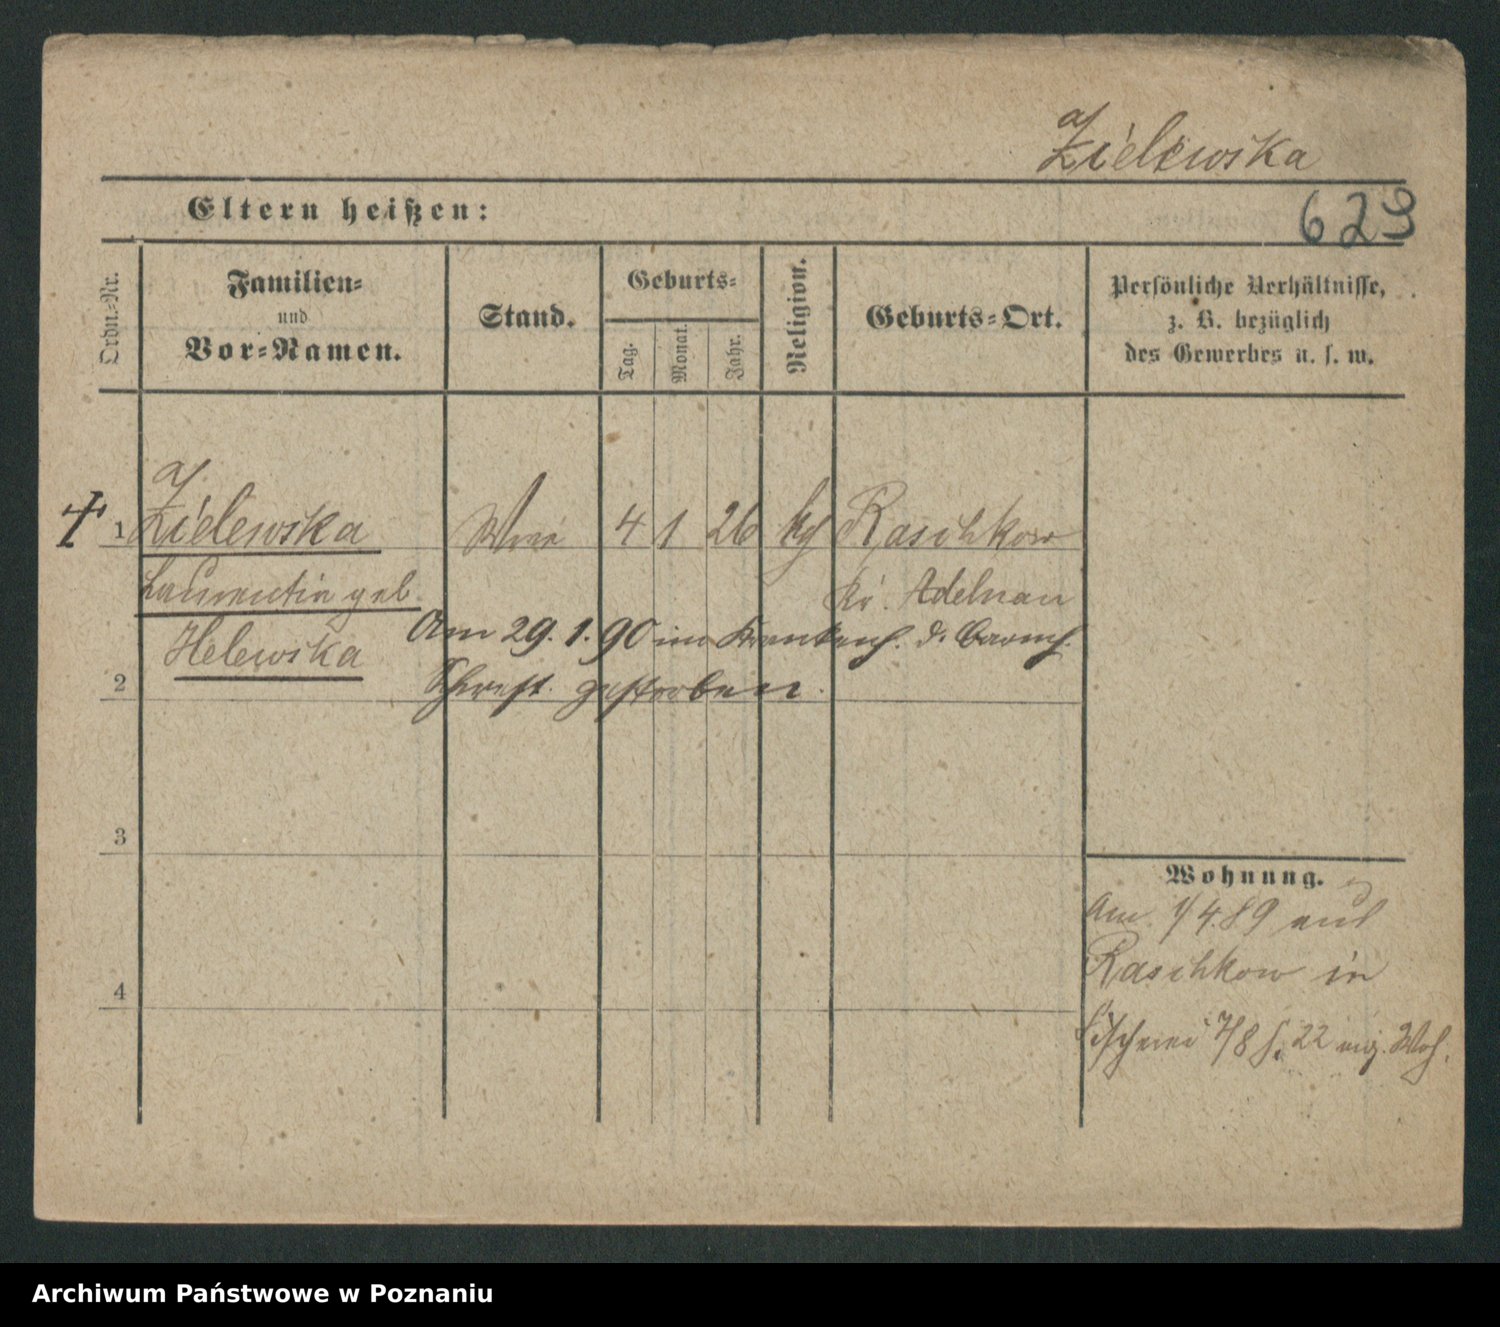 Zielewska
Eltern heißen:
629
Ordn.-Nr.
Familien-
und
Vor-Namen.
Stand.
Geburts-
Tag.
Monat.
Jahr.
Religion.
Geburts-Ort.
Persönliche Verhältnisse,
z. B. bezüglich
des Gewerbes u. s. w.
1 Zielewska 4 1 26 kg Raschkow
Laurentia geb. Kr. Adelnau
Helewska
Am 29. 1. 90 im Krankenh. d. barmh.
2
Schwest. gestorben.
3
4
Wohnung.
Am 1/4.89 aus
Raschkow in
7/8 b. 22 Woh.
Archiwum Państwowe w Poznaniu